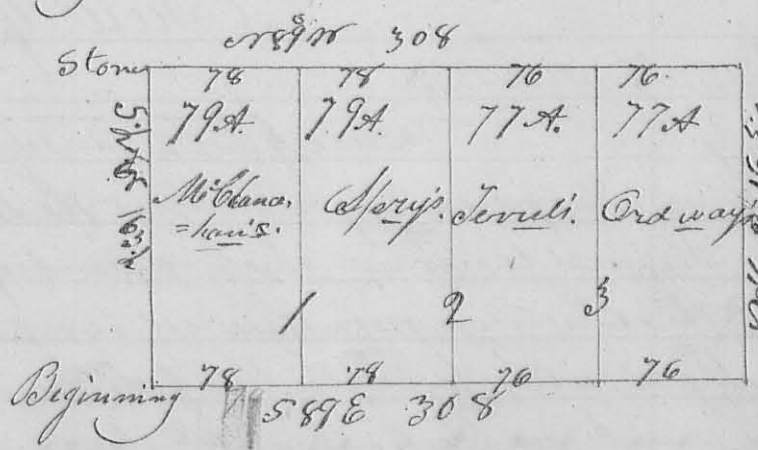 N 89 W 308
Stone
78 78 76 76
79 A. 79 A. 77 A. 77 A
McClana,
=han's. Spry's. Ordway's
1 2 3
78 78 76 76
Beginning
S 89 E 308